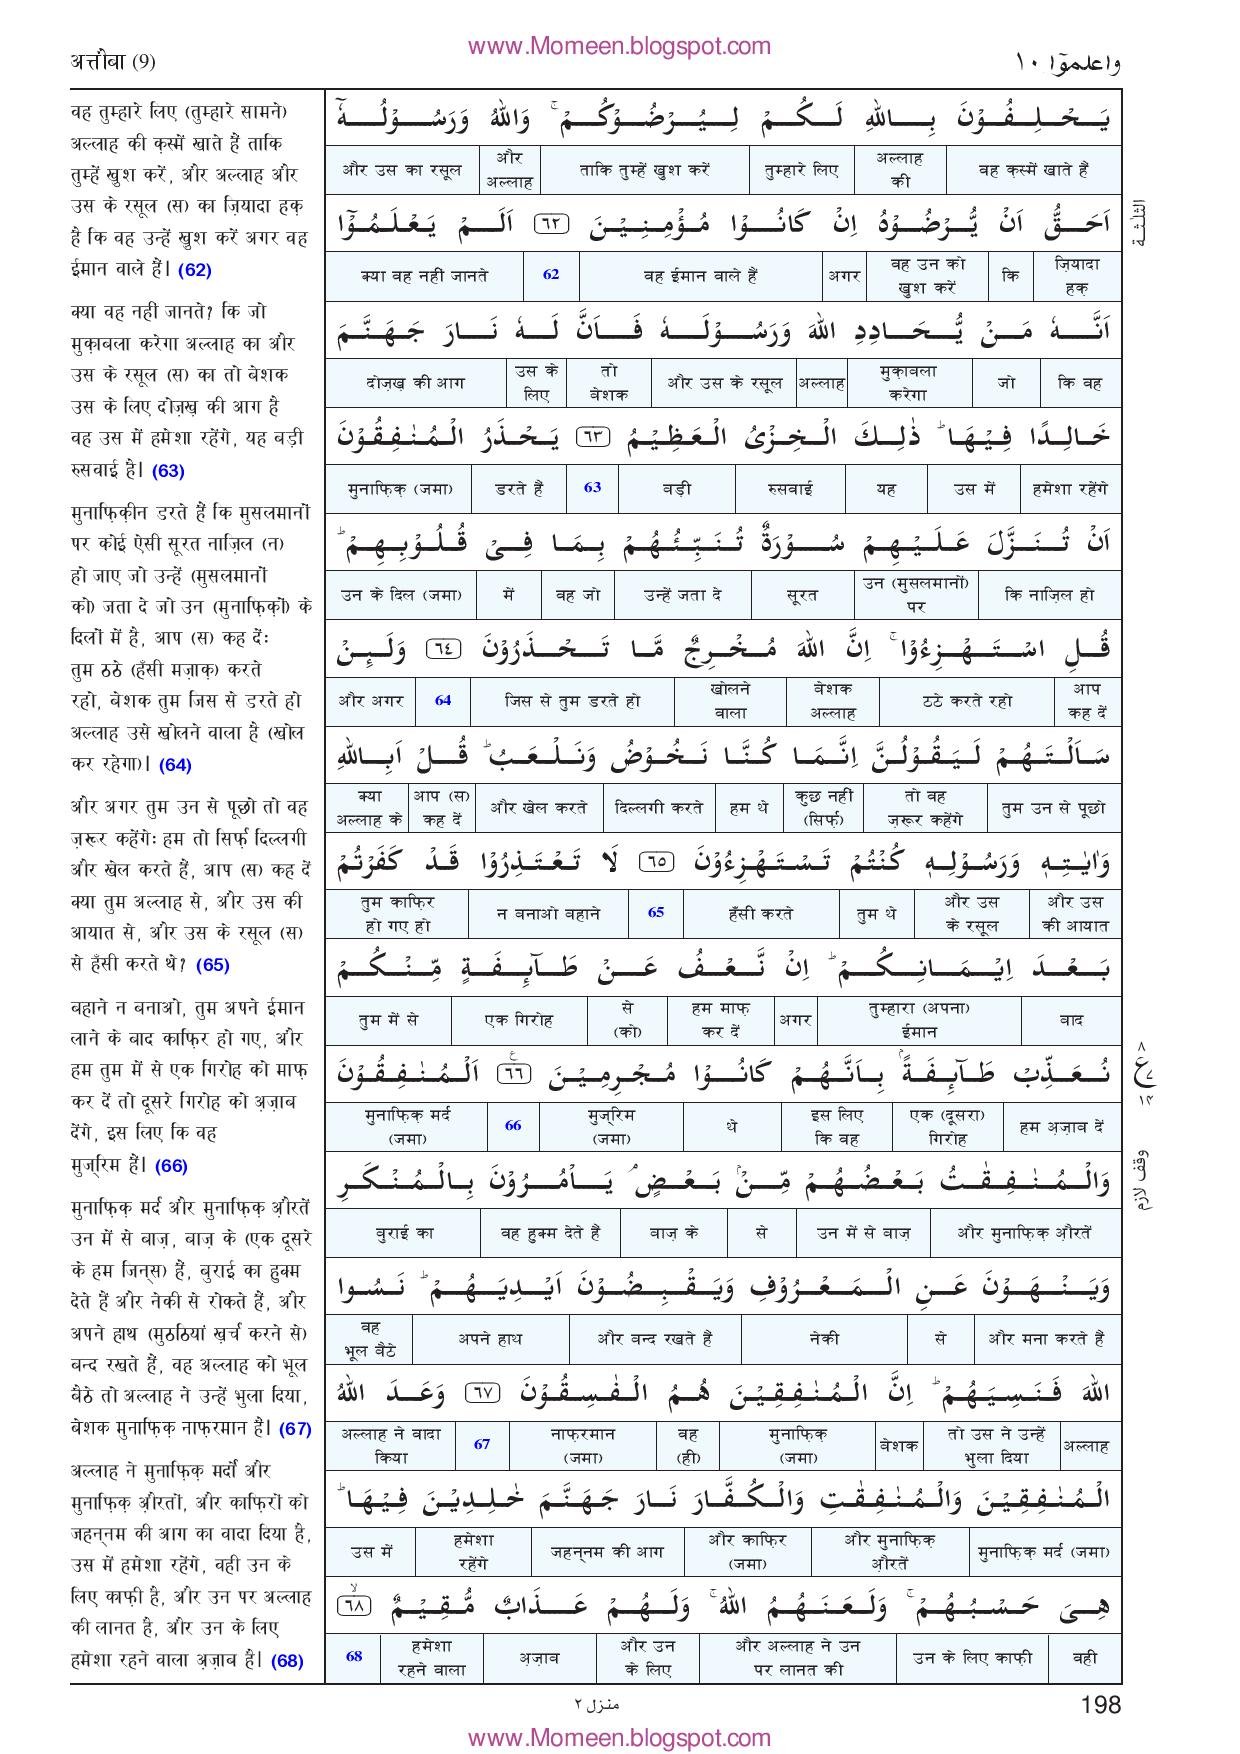 www.Momeen.blogspot.com
अत्तौबा (9)
واعلموٓا ١٠
वह तुम्हारे लिए (तुम्हारे सामने)
अल्लाह की क़स्में खाते हैं ताकि
तुम्हें ख़ुश करें, और अल्लाह और
उस के रसूल (स) का ज़ियादा हक़
है कि वह उन्हें ख़ुश करें अगर वह
ईमान वाले हैं। (62)
क्या वह नही जानते? कि जो
मुक़ाबला करेगा अल्लाह का और
उस के रसूल (स) का तो बेशक
उस के लिए दोज़ख़ की आग है
वह उस में हमेशा रहेंगे, यह बड़ी
रुसवाई है। (63)
मुनाफ़िक़ीन डरते हैं कि मुसलमानों
पर कोई ऐसी सूरत नाज़िल (न)
हो जाए जो उन्हें (मुसलमानों
को) जता दे जो उन (मुनाफ़िक़ों) के
दिलों में है, आप (स) कह दें:
तुम ठठे (हँसी मज़ाक़) करते
रहो, बेशक तुम जिस से डरते हो
अल्लाह उसे खोलने वाला है (खोल
कर रहेगा)। (64)
और अगर तुम उन से पूछो तो वह
ज़रूर कहेंगे: हम तो सिर्फ़ दिल्लगी
और खेल करते हैं, आप (स) कह दें
क्या तुम अल्लाह से, और उस की
आयात से, और उस के रसूल (स)
से हँसी करते थे? (65)
बहाने न बनाओ, तुम अपने ईमान
लाने के बाद काफ़िर हो गए, और
हम तुम में से एक गिरोह को माफ़
कर दें तो दूसरे गिरोह को अ़ज़ाब
देंगे, इस लिए कि वह
मुज्रिम हैं। (66)
मुनाफ़िक़ मर्द और मुनाफ़िक़ औ़रतें
उन में से बाज़, बाज़ के (एक दूसरे
के हम जिन्स) हैं, बुराई का हुक्म
देते हैं और नेकी से रोकते हैं, और
अपने हाथ (मुठठियां ख़र्च करने से)
बन्द रखते हैं, वह अल्लाह को भूल
बैठे तो अल्लाह ने उन्हें भुला दिया,
बेशक मुनाफ़िक़ नाफ़रमान हैं। (67)
अल्लाह ने मुनाफ़िक़ मर्दों और
मुनाफ़िक़ औ़रतों, और काफ़िरों को
जहन्नम की आग का वादा दिया है,
उस में हमेशा रहेंगे, वही उन के
लिए काफ़ी है, और उन पर अल्लाह
की लानत है, और उन के लिए
हमेशा रहने वाला अ़ज़ाब है। (68)
يَحْلِفُوْنَ بِاللّٰهِ لَكُمْ لِيُرْضُوْكُمْ ۚ وَاللّٰهُ وَرَسُوْلُهٗٓ
वह क़स्में खाते हैं | अल्लाह की | तुम्हारे लिए | ताकि तुम्हें ख़ुश करें | और अल्लाह | और उस का रसूल
اَحَقُّ اَنْ يُّرْضُوْهُ اِنْ كَانُوْا مُؤْمِنِيْنَ ٦٢ اَلَمْ يَعْلَمُوْٓا
ज़ियादा हक़ | कि | वह उन को ख़ुश करें | अगर | वह ईमान वाले हैं | 62 | क्या वह नही जानते
اَنَّهٗ مَنْ يُّحَادِدِ اللّٰهَ وَرَسُوْلَهٗ فَاَنَّ لَهٗ نَارَ جَهَنَّمَ
कि वह | जो | मुक़ाबला करेगा | अल्लाह | और उस के रसूल | तो बेशक | उस के लिए | दोज़ख़ की आग
خَالِدًا فِيْهَا ؕ ذٰلِكَ الْخِزْىُ الْعَظِيْمُ ٦٣ يَحْذَرُ الْمُنٰفِقُوْنَ
हमेशा रहेंगे | उस में | यह | रुसवाई | बड़ी | 63 | डरते हैं | मुनाफ़िक़ (जमा)
اَنْ تُنَزَّلَ عَلَيْهِمْ سُوْرَةٌ تُنَبِّئُهُمْ بِمَا فِيْ قُلُوْبِهِمْ ؕ
कि नाज़िल हो | उन (मुसलमानों) पर | सूरत | उन्हें जता दे | वह जो | में | उन के दिल (जमा)
قُلِ اسْتَهْزِءُوْا ۚ اِنَّ اللّٰهَ مُخْرِجٌ مَّا تَحْذَرُوْنَ ٦٤ وَلَىِٕنْ
आप कह दें | ठटे करते रहो | बेशक अल्लाह | खोलने वाला | जिस से तुम डरते हो | 64 | और अगर
سَاَلْتَهُمْ لَيَقُوْلُنَّ اِنَّمَا كُنَّا نَخُوْضُ وَنَلْعَبُ ؕ قُلْ اَبِاللّٰهِ
तुम उन से पूछो | तो वह ज़रूर कहेंगे | कुछ नही (सिर्फ़) | हम थे | दिल्लगी करते | और खेल करते | आप (स) कह दें | क्या अल्लाह के
وَاٰيٰتِهٖ وَرَسُوْلِهٖ كُنْتُمْ تَسْتَهْزِءُوْنَ ٦٥ لَا تَعْتَذِرُوْا قَدْ كَفَرْتُمْ
और उस की आयात | और उस के रसूल | तुम थे | हँसी करते | 65 | न बनाओ बहाने | तुम काफ़िर हो गए हो
بَعْدَ اِيْمَانِكُمْ ؕ اِنْ نَّعْفُ عَنْ طَآىِٕفَةٍ مِّنْكُمْ
बाद | तुम्हारा (अपना) ईमान | अगर | हम माफ़ कर दें | से (को) | एक गिरोह | तुम में से
نُعَذِّبْ طَآىِٕفَةًۢ بِاَنَّهُمْ كَانُوْا مُجْرِمِيْنَ ٦٦ اَلْمُنٰفِقُوْنَ
हम अ़ज़ाब दें | एक (दूसरा) गिरोह | इस लिए कि वह | थे | मुज्रिम (जमा) | 66 | मुनाफ़िक़ मर्द (जमा)
وَالْمُنٰفِقٰتُ بَعْضُهُمْ مِّنْۢ بَعْضٍ ۘ يَاْمُرُوْنَ بِالْمُنْكَرِ
और मुनाफ़िक़ औ़रतें | उन में से बाज़ | से | बाज़ के | वह हुक्म देते हैं | बुराई का
وَيَنْهَوْنَ عَنِ الْمَعْرُوْفِ وَيَقْبِضُوْنَ اَيْدِيَهُمْ ؕ نَسُوا
और मना करते हैं | से | नेकी | और बन्द रखते हैं | अपने हाथ | वह भूल बैठे
اللّٰهَ فَنَسِيَهُمْ ؕ اِنَّ الْمُنٰفِقِيْنَ هُمُ الْفٰسِقُوْنَ ٦٧ وَعَدَ اللّٰهُ
अल्लाह | तो उस ने उन्हें भुला दिया | बेशक | मुनाफ़िक़ (जमा) | वह (ही) | नाफ़रमान (जमा) | 67 | अल्लाह ने वादा किया
الْمُنٰفِقِيْنَ وَالْمُنٰفِقٰتِ وَالْكُفَّارَ نَارَ جَهَنَّمَ خٰلِدِيْنَ فِيْهَا ؕ
मुनाफ़िक़ मर्द (जमा) | और मुनाफ़िक़ औ़रतें | और काफ़िर (जमा) | जहन्नम की आग | हमेशा रहेंगे | उस में
هِيَ حَسْبُهُمْ ۚ وَلَعَنَهُمُ اللّٰهُ ۚ وَلَهُمْ عَذَابٌ مُّقِيْمٌ ٦٨
वही | उन के लिए काफ़ी | और अल्लाह ने उन पर लानत की | और उन के लिए | अ़ज़ाब | हमेशा रहने वाला | 68
الثلثة
٨
ع
٧
١٤
وقف لازم
منزل ٢
198
www.Momeen.blogspot.com